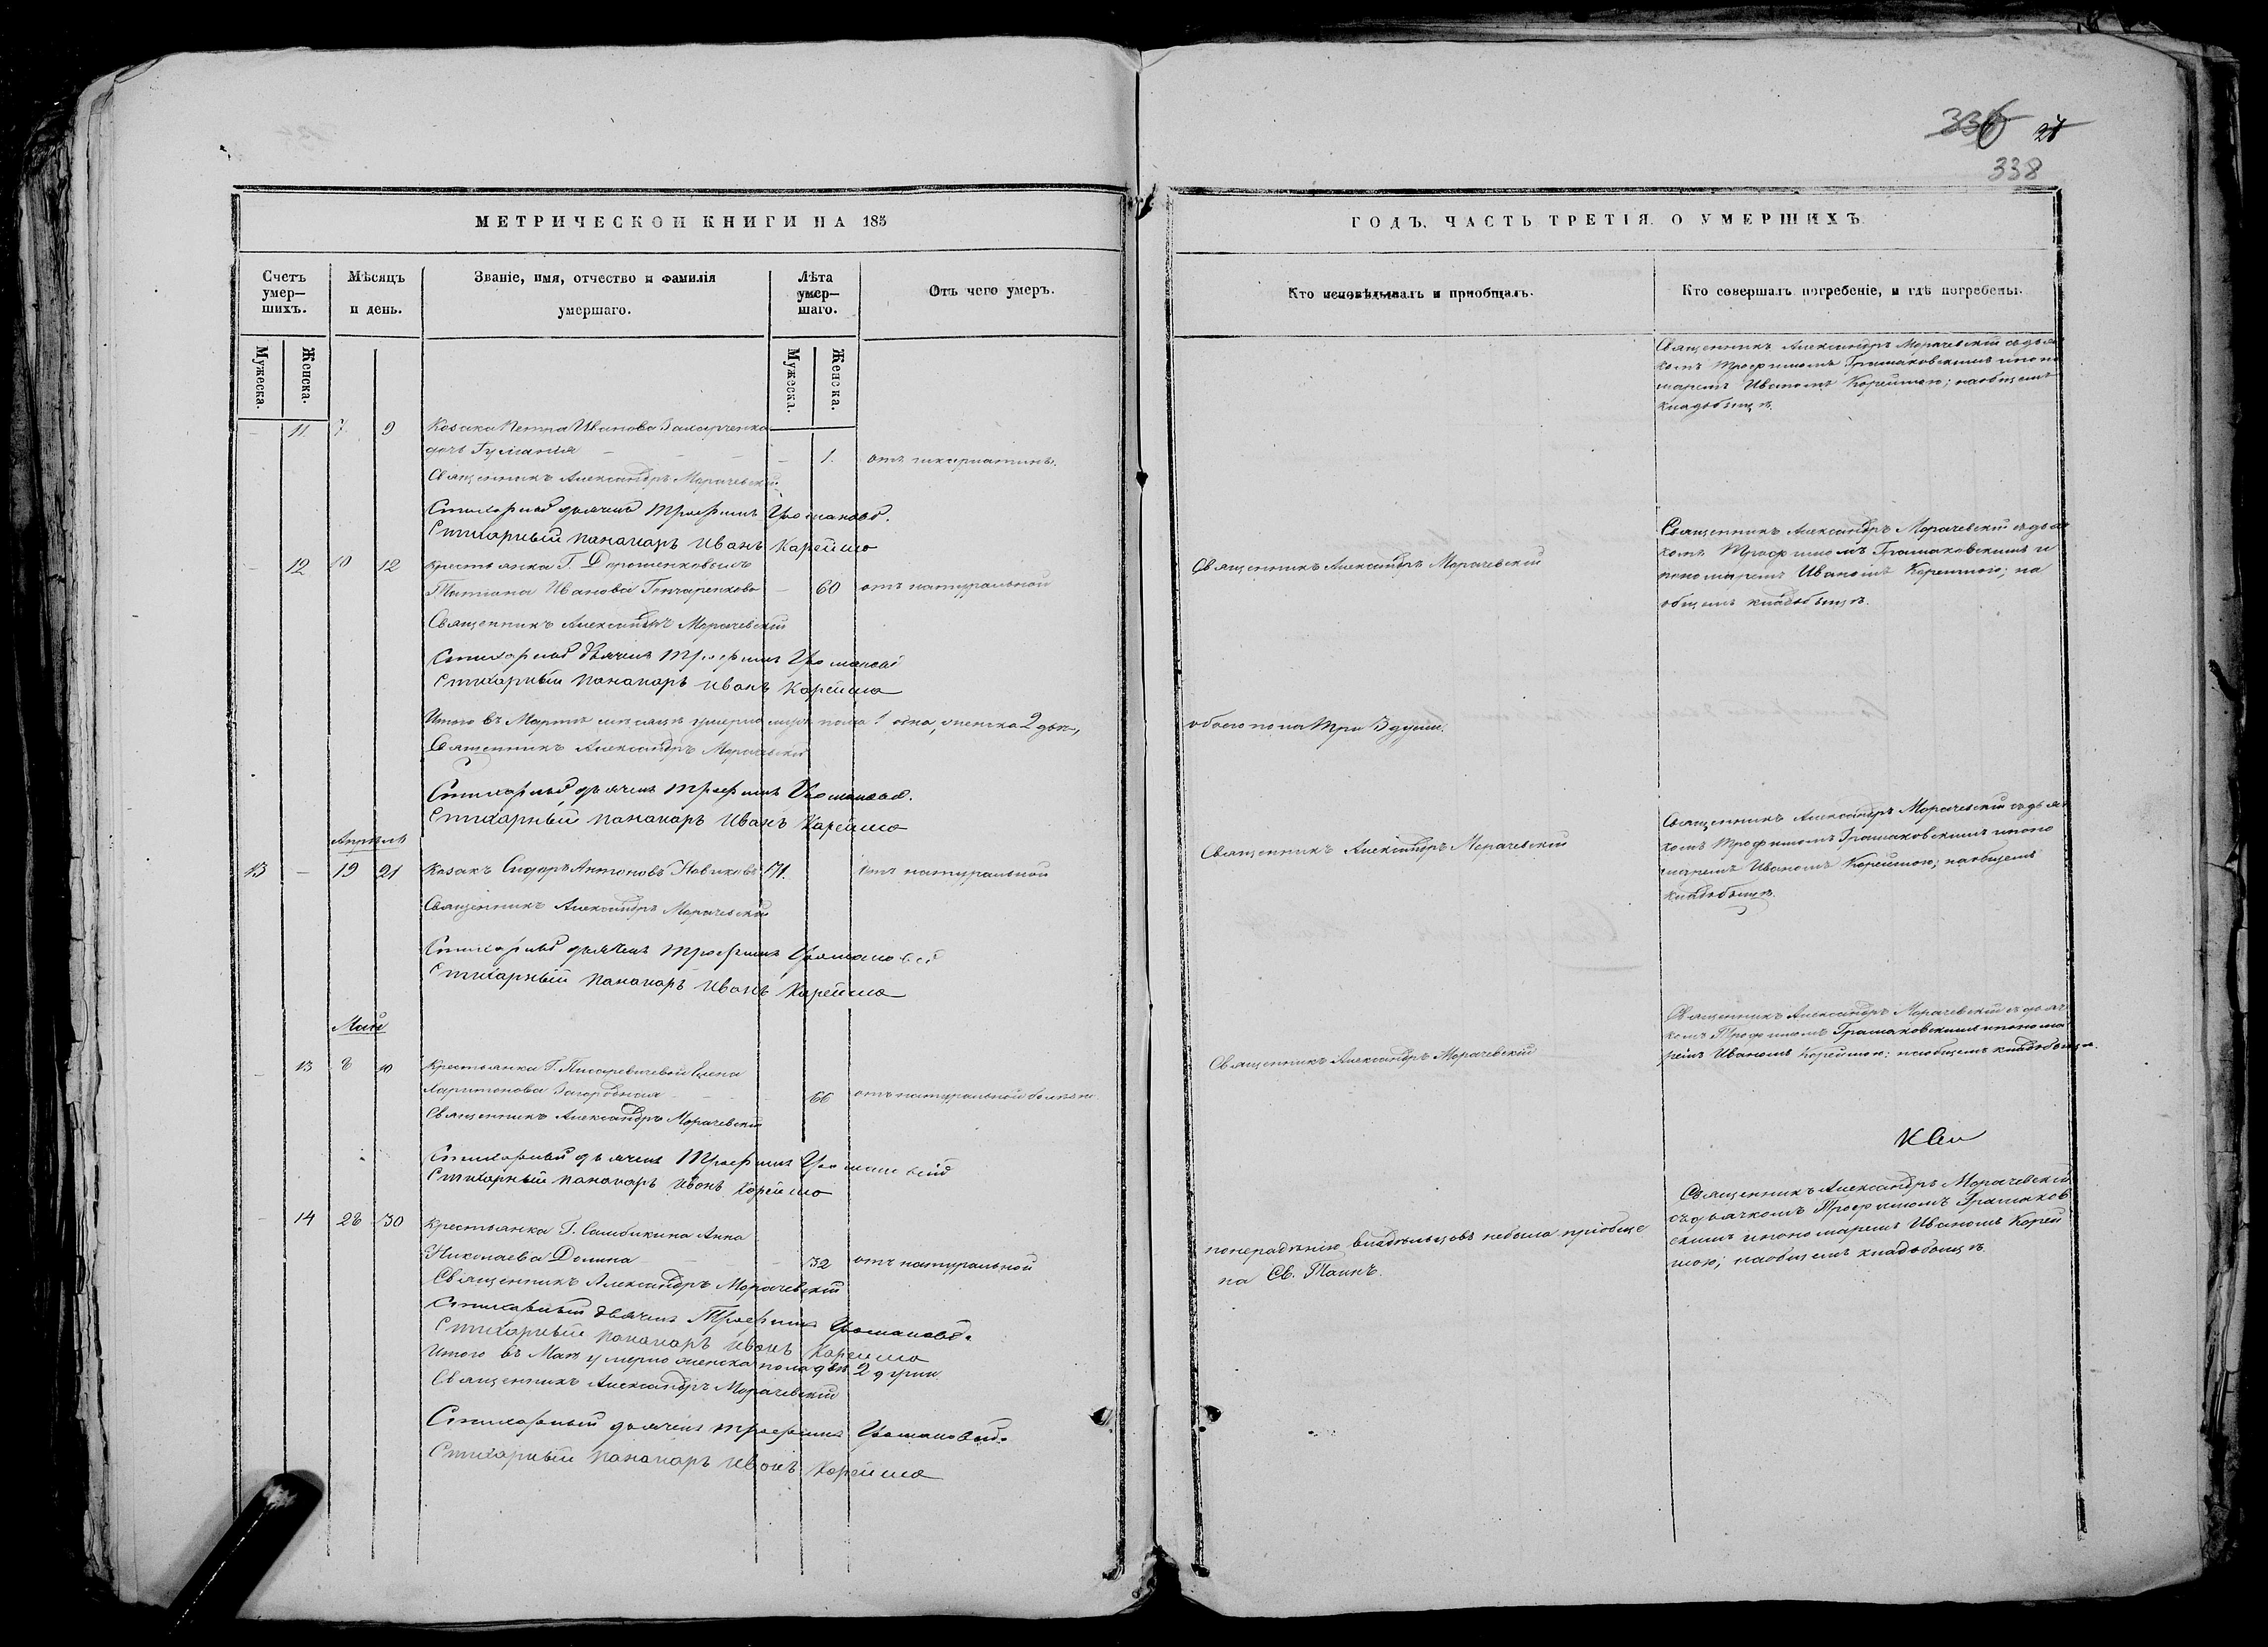 336 28
338
МЕТРИЧЕСКОЙ КНИГИ НА 185
Счетъ умер—шихъ.
Мѣсяцъ и день.
Званіе, имя, отчество и фамилія умершаго.
Лѣта умер—шаго.
Отъ чего умеръ.
Мужеска.
Женска.
Мужеска.
Женска.
11 7 9 Козака Петра Иванова
дочь 1. отъ
Священникъ Александръ Морачевскій
Стихарный дьячекъ Трофимъ
Стихарный панамаръ Иванъ Карейша
12 10 12 Крестьянка Г. Дорошенковыхъ
Татіана Иванова Гончаренкова 60 отъ натуральной
Священникъ Александръ Морачевскій
Стихарный дьячекъ Трофимъ
Стихарный панамаръ Иванъ Карейша
Итого въ Мартѣ мѣсяцѣ умерло муж. пола 1 одна, женска 2 двѣ,
Священникъ Александръ Морачевскій
Стихарный дьячекъ Трофимъ
Стихарный панамаръ Иванъ Карейша
Апрѣль
13 — 19 21 Козакъ Сидоръ Антоновъ Новиковъ 71. Отъ натуральной
Священникъ Александръ Морачевскій
Стихарный дьячекъ Трофимъ
Стихарный панамаръ Иванъ Карейша
Май
13 8 10 Крестьянка Г. Писаревичевой Елена
Харитонова Загородная 66 отъ натуральной болѣзни
Священникъ Александръ Морачевскій
Стихарный дьячекъ Трофимъ
Стихарный панамаръ Иванъ Карейша
14 28 30 Крестьянка Г. Самбикина Анна
Николаева Долина 32 отъ натуральной
Священникъ Александръ Морачевскій
Стихарный дьячекъ Трофимъ
Стихарный панамаръ Иванъ Карейша
Итого въ Маѣ умерло женска пола двѣ 2 души
Священникъ Александръ Морачевскій
Стихарный дьячекъ Трофимъ
Стихарный панамаръ Иванъ Карейша
ГОДЪ, ЧАСТЬ ТРЕТІЯ О УМЕРШИХЪ.
Кто исповѣдывалъ и пріобщалъ.
Кто совершалъ погребеніе, и гдѣ погребены.
Священникъ Александръ Морачевскій съ дья
комъ Трофимомъ Грамаковскимъ и поно
маремъ Иваномъ Корейшою; на общемъ
кладбищѣ.
Священникъ Александръ Морачевскій
Священникъ Александръ Морачевскій съ дьяч
комъ Трофимомъ Грамаковскимъ и
пономаремъ Иваномъ Корейшою; на
общемъ кладбищѣ.
обоего пола три 3 души.
Священникъ Александръ Морачевскій
Священникъ Александръ Морачевскій съ дьяч
комъ Трофимомъ Грамаковскимъ и поно
маремъ Иваномъ Корейшою; на общемъ
кладбищѣ.
Священникъ Александръ Морачевскій
Священникъ Александръ Морачевскій съ дьяч
комъ Трофимомъ Грамаковскимъ и понома
ремъ Иваномъ Корейшою: на общемъ кладбищѣ.
по нерадѣнію владѣльцовъ небыла пріобще
на Св. Таинъ.
Священникъ Александръ Морачевскій
съ дьячкомъ Трофимомъ Грамаков
скимъ и пономаремъ Иваномъ Корей
шою; на общемъ кладбищѣ.